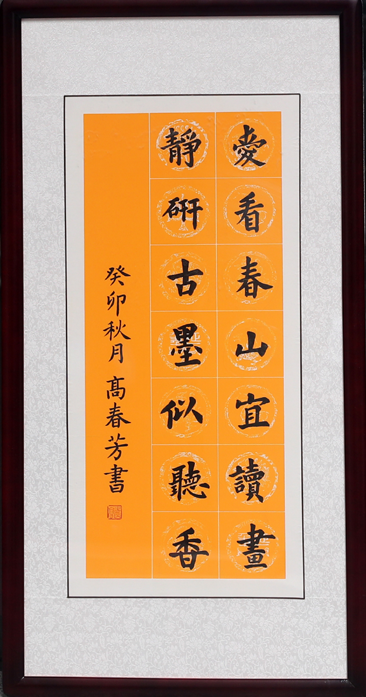 愛看春山宜讀畫
靜研古墨似聽香
癸卯秋月 高春芳書